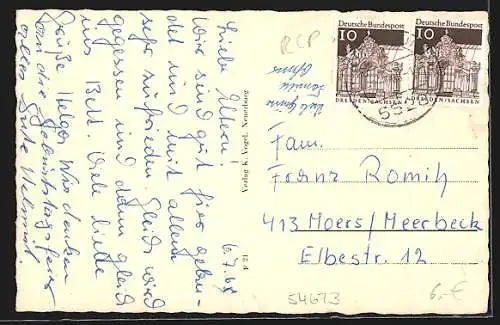 6.7.68
Liebe Eltern!
Wir sind gut hier gelan-
det und mit allem
sehr zufrieden. Gleich wird
gegessen und dann gleich
ins Bett. Viele liebe
Grüße Helga. Wir denken
an die Geburtstagsfeier
alles Gute Helmut.
12 d
Verlag K. Vogel,
RCP
Deutsche Bundespost
10
DRESDEN/SACHSEN
Deutsche Bundespost
10
DRESDEN/SACHSEN
Fam.
Franz Romih
413 Moers/Meerbeck
Elbestr. 12
54673
6,-€